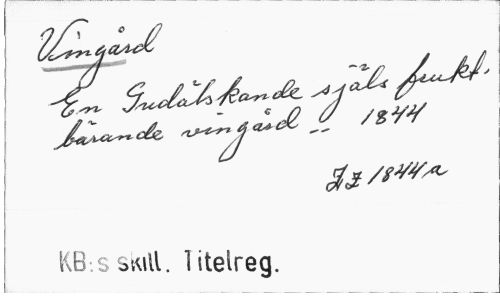 Vingård
En Gudälskande själs frukt-
bärande vingård -- 1844
Zz 1844a
KB:s skill. Titelreg.